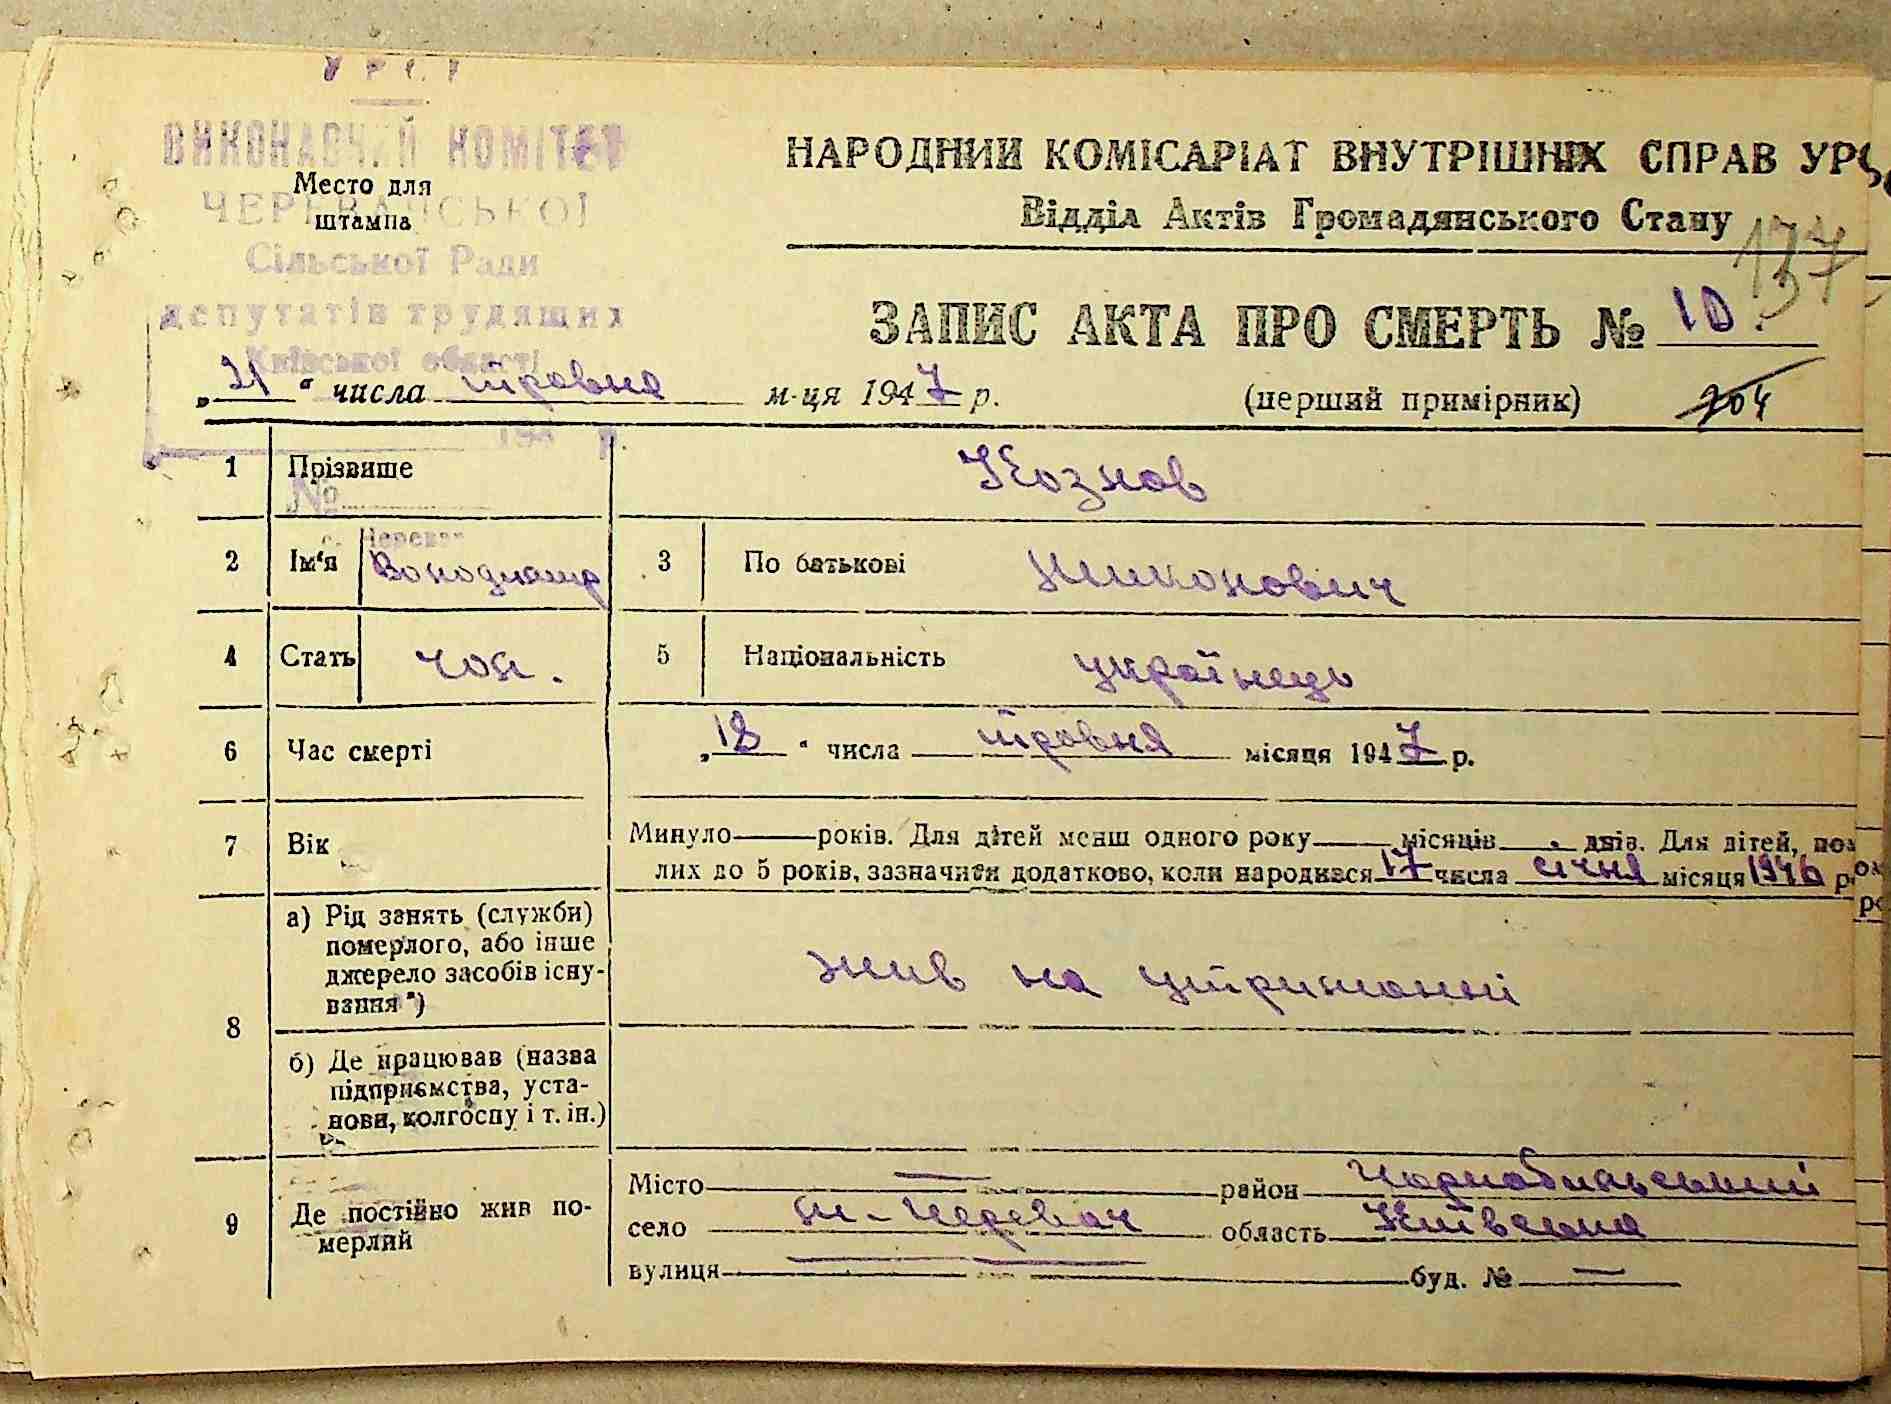 УРСР
ВИКОНАВЧИЙ КОМІТЕТ
Место для
штампа
ЧЕРЕВАЧСЬКОЇ
Сільської Ради
депутатів трудящих
Київської області
194 р
№
с. Черевач
НАРОДНИЙ КОМІСАРІАТ ВНУТРІШНІХ СПРАВ УРС
Відділ Актів Громадянського Стану
137
ЗАПИС АКТА ПРО СМЕРТЬ № 10.
„21“ числа травня м-ця 1947 р.
(перший примірник) 204
1 Прізвище Кознов
2 Ім'я Володимир 3 По батькові Никонович
4 Стать чол. 5 Національність українець
6 Час смерті „18“ числа травня місяця 1947 р.
7 Вік Минуло — років. Для дітей менш одного року — місяців — днів. Для дітей, пом
лих до 5 років, зазначити додатково, коли народився 17 числа січня місяця 1946 р.
8 а) Рід занять (служби)
померлого, або інше
джерело засобів існу-
вання *)
жив на утриманні
б) Де працював (назва
підприємства, уста-
нови, колгоспу і т. ін.)
9 Де постійно жив по-
мерлий
Місто — район Чорнобильський
село Черевач область Київська
вулиця — буд. № —